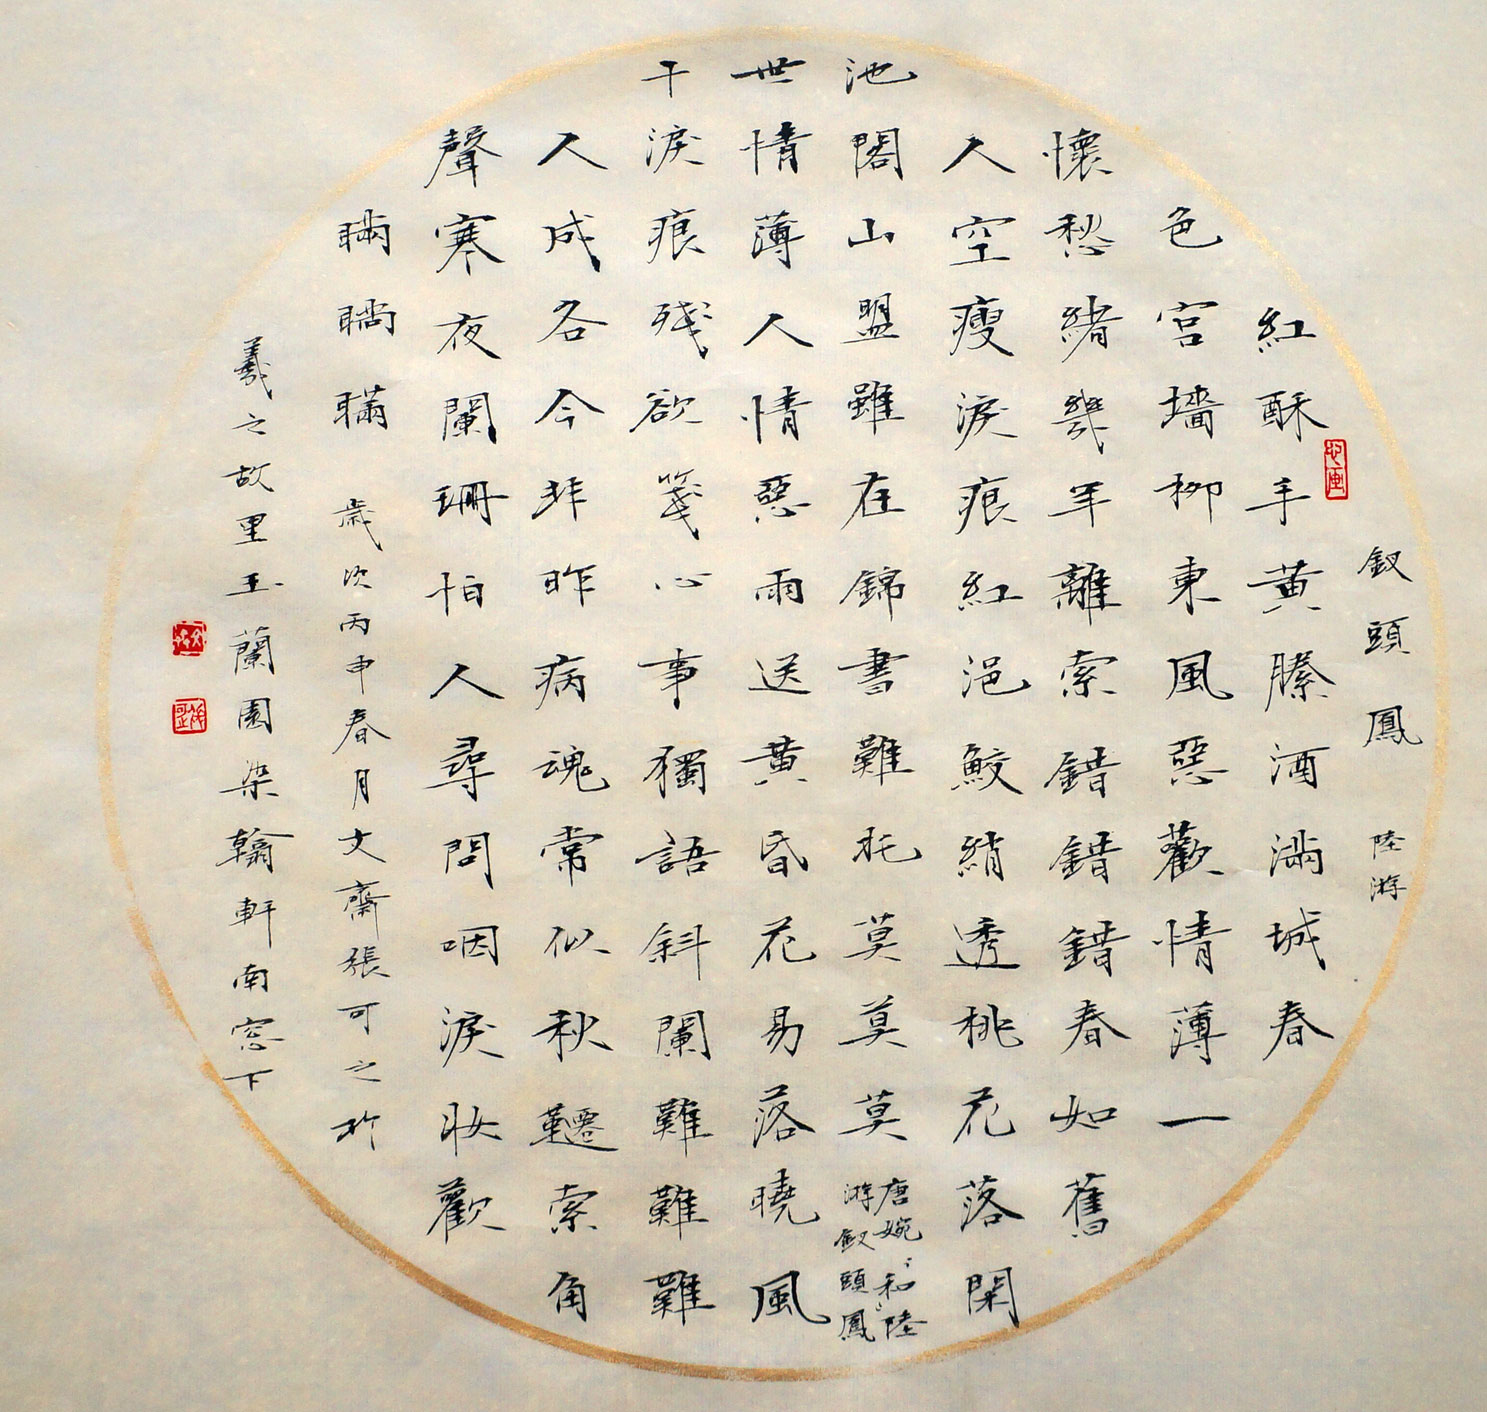 釵頭鳳 陸游
紅酥手黃縢酒滿城春
色宮墻柳東風惡歡情薄一
懷愁緒幾年離索錯錯錯春如舊
人空瘦淚痕紅浥鮫綃透桃花落閑
池閣山盟雖在錦書難托莫莫莫
唐婉和陸
游釵頭鳳
世情薄人情惡雨送黃昏花易落曉風
干淚痕殘欲箋心事獨語斜闌難難難
人成各今非昨病魂常似秋韆索角
聲寒夜闌珊怕人尋問咽淚妝歡
瞞瞞瞞 歲次丙申春月文齋張可之於
羲之故里玉蘭園染翰軒南窗下